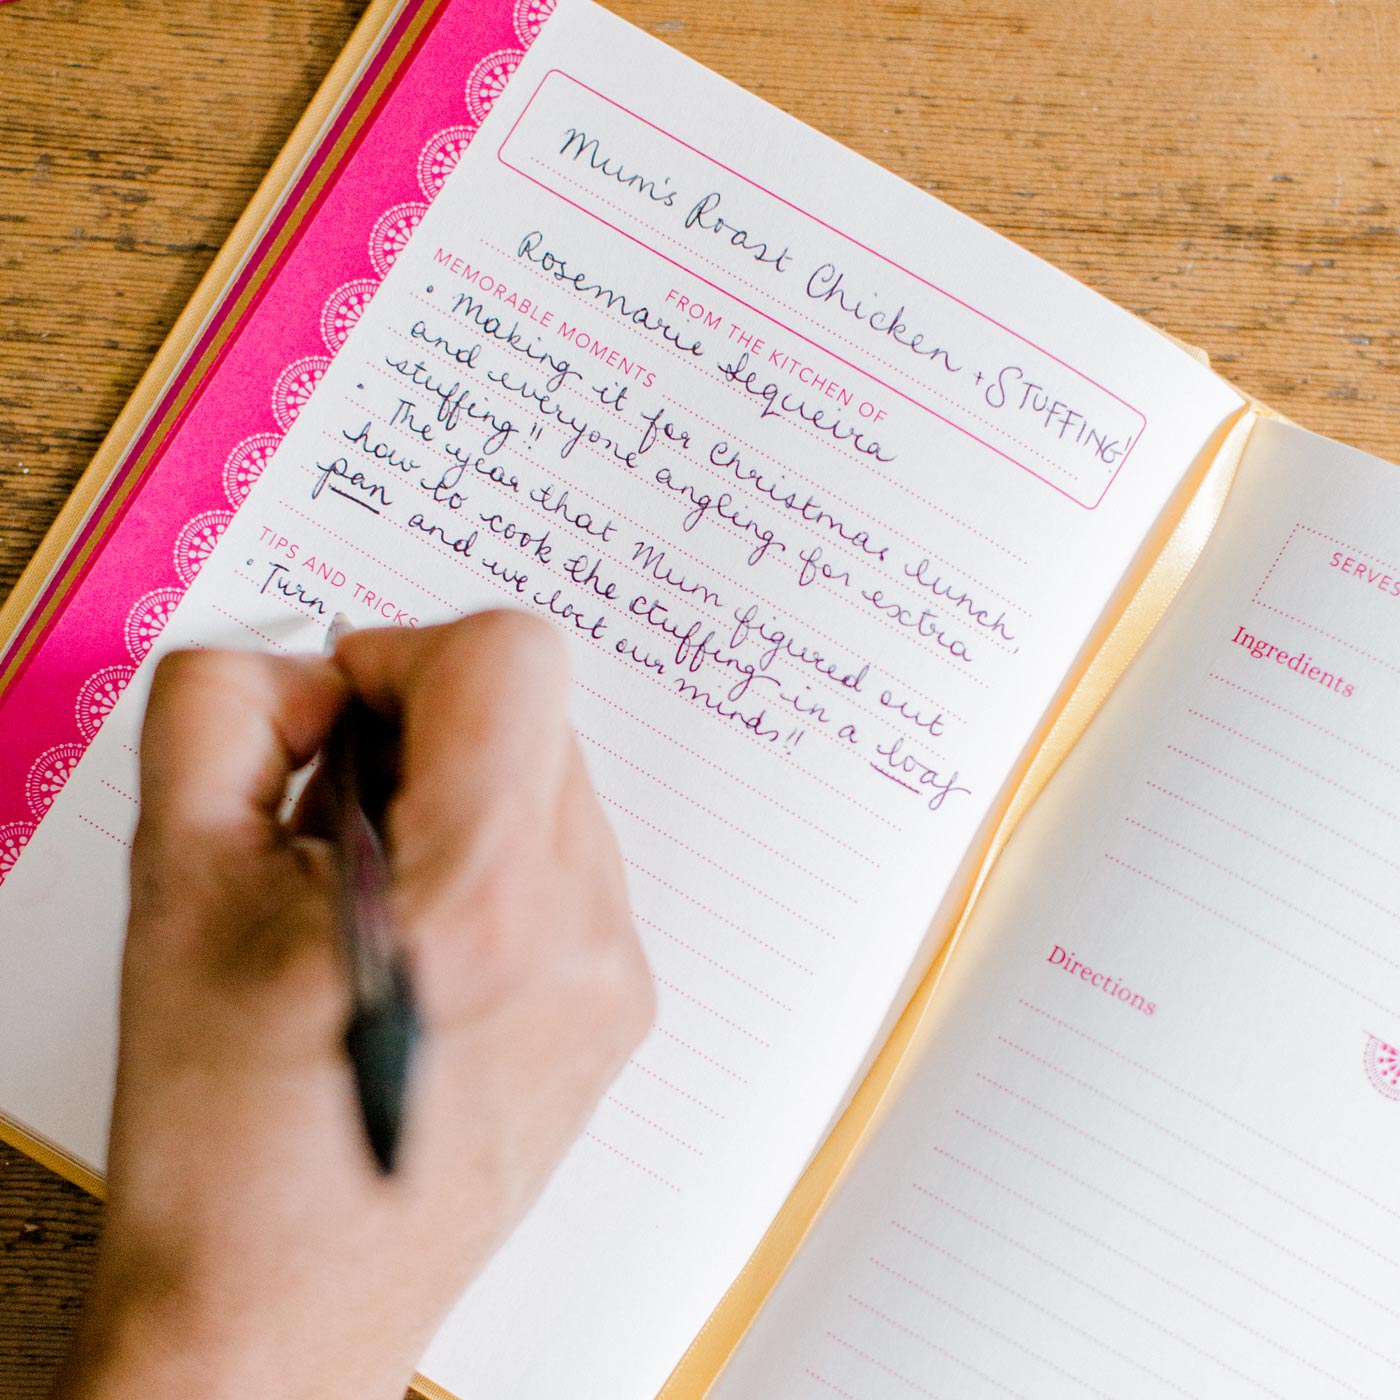 Mum's Roast Chicken + STUFFING!
FROM THE KITCHEN OF
Rosemarie Sequeira
MEMORABLE MOMENTS
• Making it for Christmas lunch,
and everyone angling for extra
stuffing!!
• The year that Mum figured out
how to cook the stuffing in a loaf
pan and we lost our minds!!
TIPS AND TRICKS
• Turn
SERVES
Ingredients
Directions